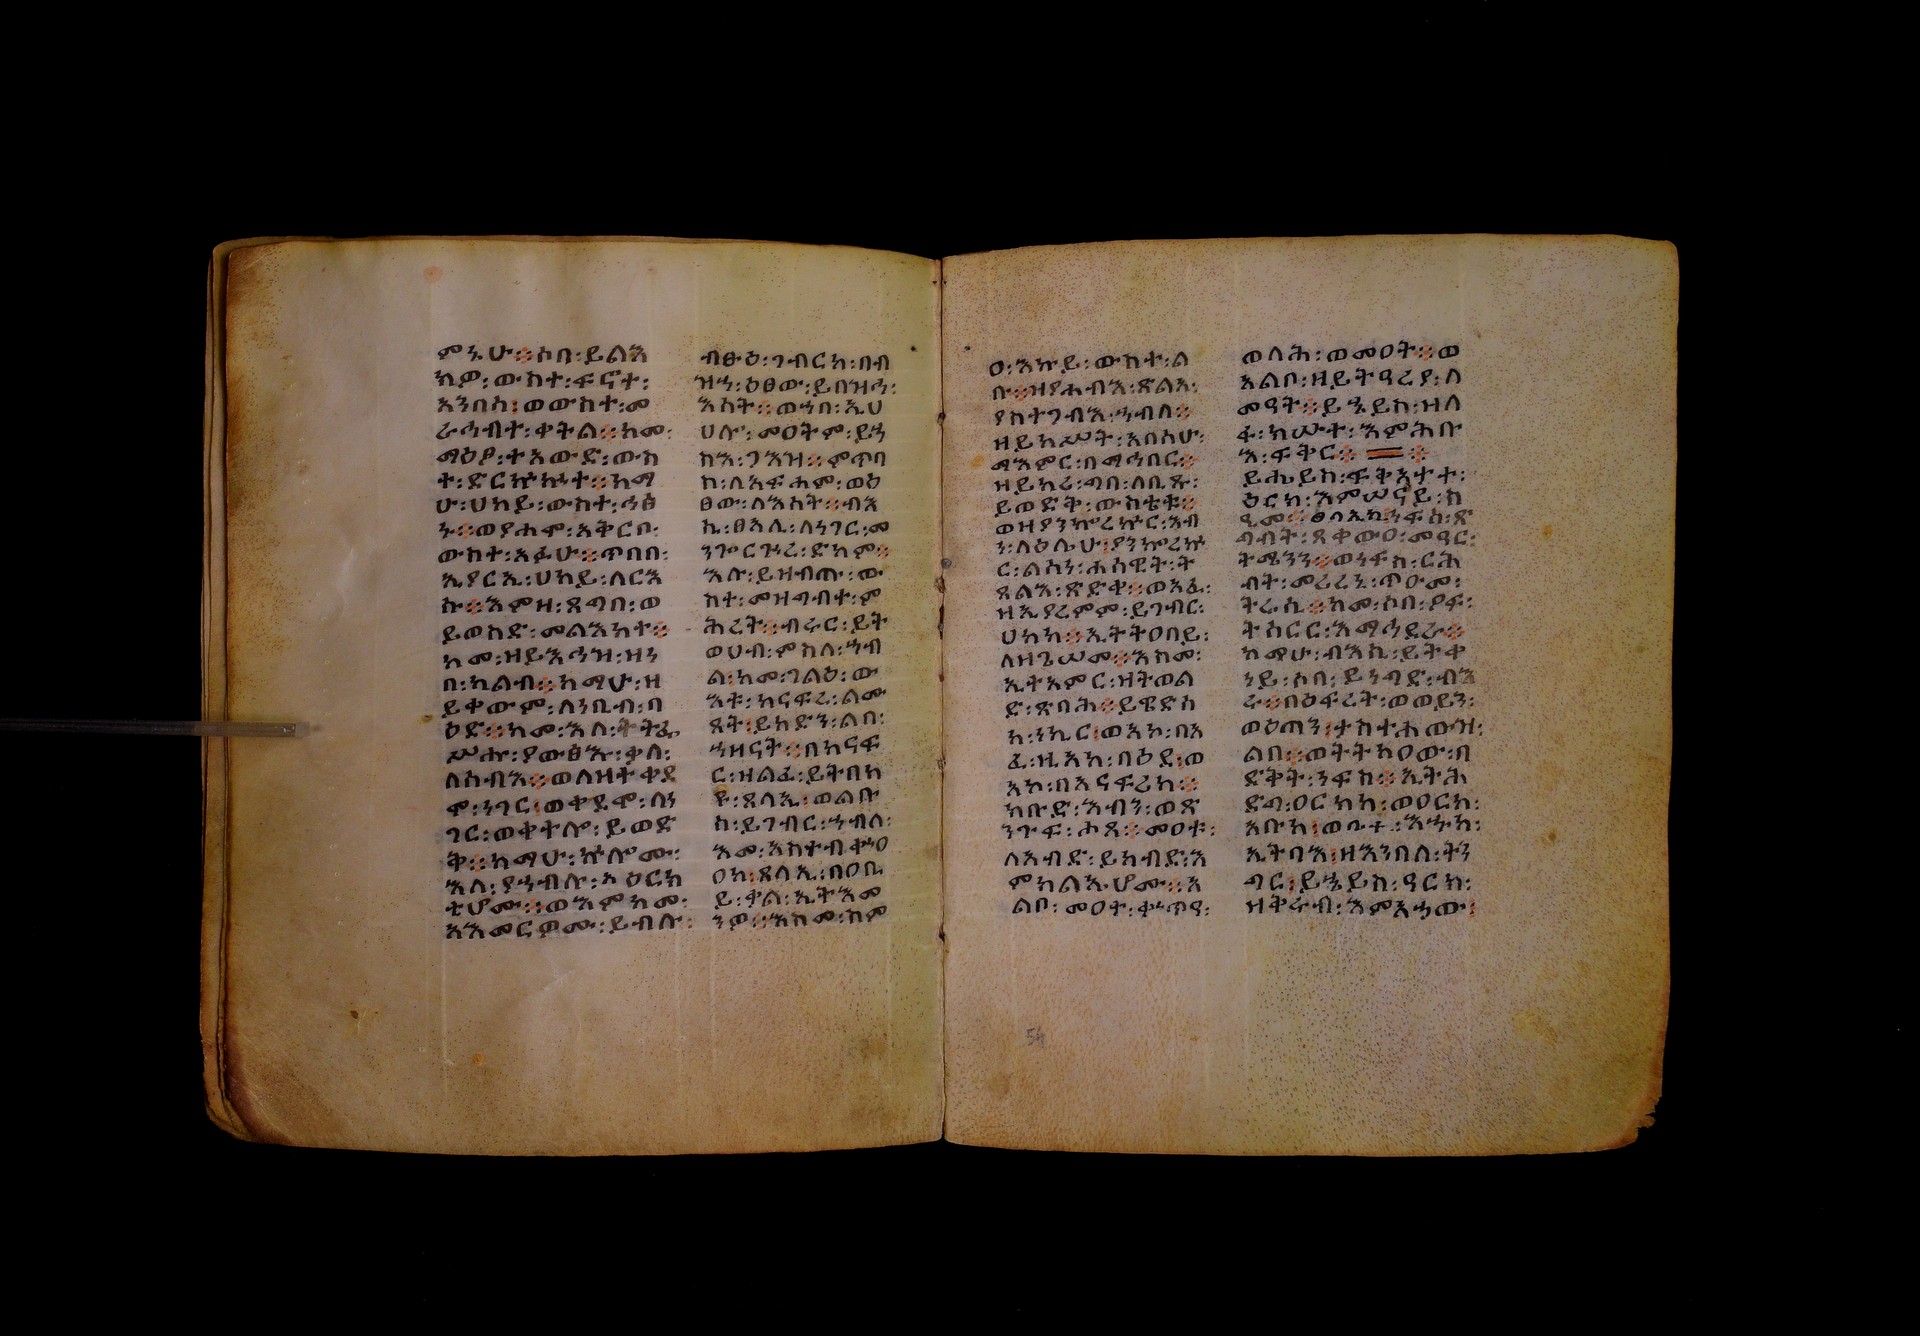 ምኑሁ፨ሶበ፡ይልእ
ክዎ፡ውስተ፡ፍኖተ፡
አንበሳ፡ወውስተ፡መ
ራኅብት፡ቀትል፨ከመ፡
ማዕፆ፡ተአውድ፡ውስ
ተ፡ድርኵኳት፨ከማ
ሁ፡ሀካይ፡ውስተ፡ኅፅ
ኑ፨ወያሐሞ፡አቅርቦ፡
ውስተ፡አፉሁ፨ጥበበ፡
ኢያርኢ፡ሀካይ፡ለርእ
ሱ፨እምዘ፡ጸግበ፡ወ
ይወስድ፡መልእክተ፨
ከመ፡ዘይእኅዝ፡ዘነ
በ፡ከልብ፨ከማሁ፡ዘ
ይቀውም፡ለነቢብ፡ባ
ዕድ፨ከመ፡እለ፡ትትፌ
ሥሑ፡ያውፅኡ፡ቃለ፡
ለሰብእ፨ወለዘት ቀደ
ሞ፡ነገር፡ወቀደሞ፡ለነ
ገር፡ወቀተሎ፡ይወድ
ቅ፨ከማሁ፡ኵሎሙ፡
እለ፡ያኀብሉ፡አ ዕርክ
ቲሆሙ፨ወእምከመ፡
አእመርዎሙ፡ይብሉ፡
ብፁዕ፡ገብርከ፡በብ
ዝኀ፡ዕፀው፡ይበዝኅ፡
እሳት፨ወኀበ፡ኢሀ
ሀሎ፡መዐትም፡ይኀ
ስእ፡ገእዝ፨ምጥባ
ስ፡ለአፍሐም፡ወዕ
ፀው፡ለእሳት፨ብእ
ሲ፡ፀአሊ፡ለነገር፡መ
ንጐርጓረ፡ድካም፨
እሉ፡ይዘብጡ፡ው
ስተ፡መዝጋብተ፡ም
ሕረት፨ብሩር፡ይት
ወሀብ፡ምስለ፡ኀብ
ል፡ከመ፡ገልዕ፡ው
እቱ፡ከናፍረ፡ልሙ
ጻት፡ይከድን፡ልበ፡
ኀዘናት፨በከናፍ
ር፡ዘልፈ፡ይትበካ
ዩ፡ጸላኢ፡ወልቡ
ሰ፡ይገብር፡ኀብለ፡
እመ፡አስተብቍዐ
ዐከ፡ጸላኢ፡በዐቢ
ይ፡ቃል፡ኢትእመ
ንዎ፨እስመ፡ስም
ዐ፡እኩይ፡ውስተ፡ል
ቡ፨ዝያሐብእ፡ጽልአ፡
ያስተጋብእ፡ኀብለ፨
ዘይከሥት፡አበሳሁ፡
ማእምር፡በማኅበር፨
ዘይከሪ፡ግበ፡ለቢጹ፡
ይወድቅ፡ውስቴቱ፨
ወዘያንኰረኵር፡እብ
ነ፡ለዕሌሁ፡ያንኰረኵ
ር፡ልሳነ፡ሐሳዊት፡ት
ጸልእ፡ጽድቀ፨ወአፈ፡
ዘኢያረምም፡ይገብር፡
ሀከከ፨ኢትትዐበይ፡
ለዘጌሠመ፨እስመ፡
ኢትአምር፡ዘትወል
ድ፡ጽባሕ፨ይዌድስ
ከ፡ነኪር፡ወአኮ፡በአ
ፈ፡ዚአከ፡በዕደ፡ወ
አኮ፡በአናፍሪከ፨
ከቡድ፡እብን፡ወጽ
ንጉፍ፡ሖጸ፨መዐቱ፡
ለአብድ፡ይከብድ፡እ
ምክልኤሆሙ፨አ
ልቦ፡መዐት፡ቍጥዓ፡
ወለሕ፡ወመዐት፨ወ
አልቦ፡ዘይትዓረያ፡ለ
መዓት፨ይኄይስ፡ዝለ
ፋ፡ከሡተ፡እምሕቡ
እ፡ፍቅር፨ ፨
ይሔይስ፡ፍቅአታተ፡
ዕርክ፡እምሠናይ፡ስ
ዒመ፨ፀላኢከ፡ነፍስ፡ጽ
ግብት፡ጸቀውዐ፡መዓር፡
ትሜንን፨ወነፍስ፡ርሕ
ብት፡መሪረኒ፡ጥዑመ፡
ትሬሲ፨ከመ፡ሶበ፡ዖፍ፡
ትሰርር፡እማኅደራ፨
ከማሁ፡ብእሲ፡ይትቀ
ነይ፡ሶበ፡ይነግድ፡ብን
ሬ፨በዕፍረት፡ወወይን፡
ወዕጣን፡ተስተሐውዝ፡
ልበ፨ወትትከዐው፡በ
ድቅት፡ነፍስ፨ኢትሕ
ድግ፡ዐርከከ፡ወዐርከ፡
አቡከ፡ወቤተ፡እኁከ፡
ኢትባእ፡ዘእንበለ፡ትን
ግር፡ይኄይስ፡ዓርክ፡
ዘቅሩብ፡እምእኅው፡
54